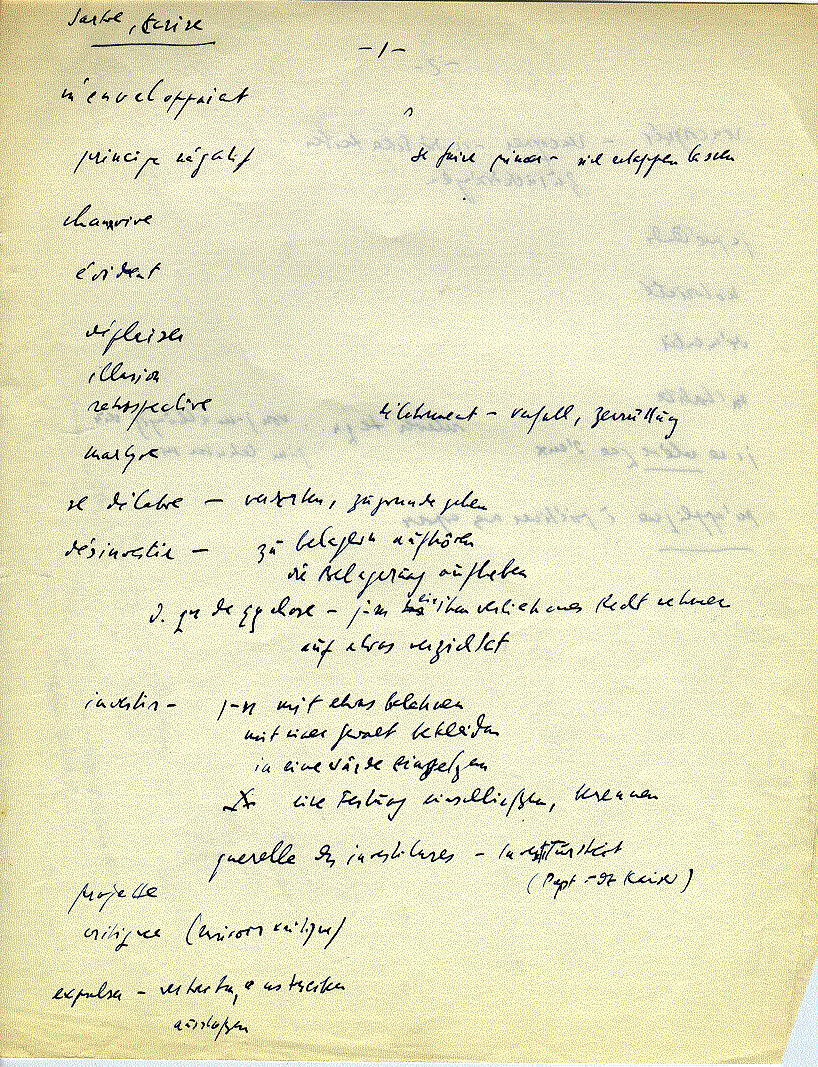 Sartre, écrire
- 1 -
m'enveloppaient
principe négatif
se faire pincer - sich ertappen lassen
chanvre
évident
déplaisir
illusion
retrospective
délabrement - Verfall, Zerrüttung
martyre
se délabre - verderben, zugrunde gehen
désinvestir - zu belagern aufhören
die Belagerung aufheben
d. qn de qq chose - j-m ein ihm verliehenes Recht nehmen
auf etwas verzichtet
investir - j-n mit etwas belehnen
mit einer Gewalt bekleiden
in eine Würde einsetzen
eine Festung einschließen, berennen
querelle des investitures - Investiturstreit
(Papst - dt Kaiser)
projette
critique (
expulser - vertreiben, austreiben
ausstoßen